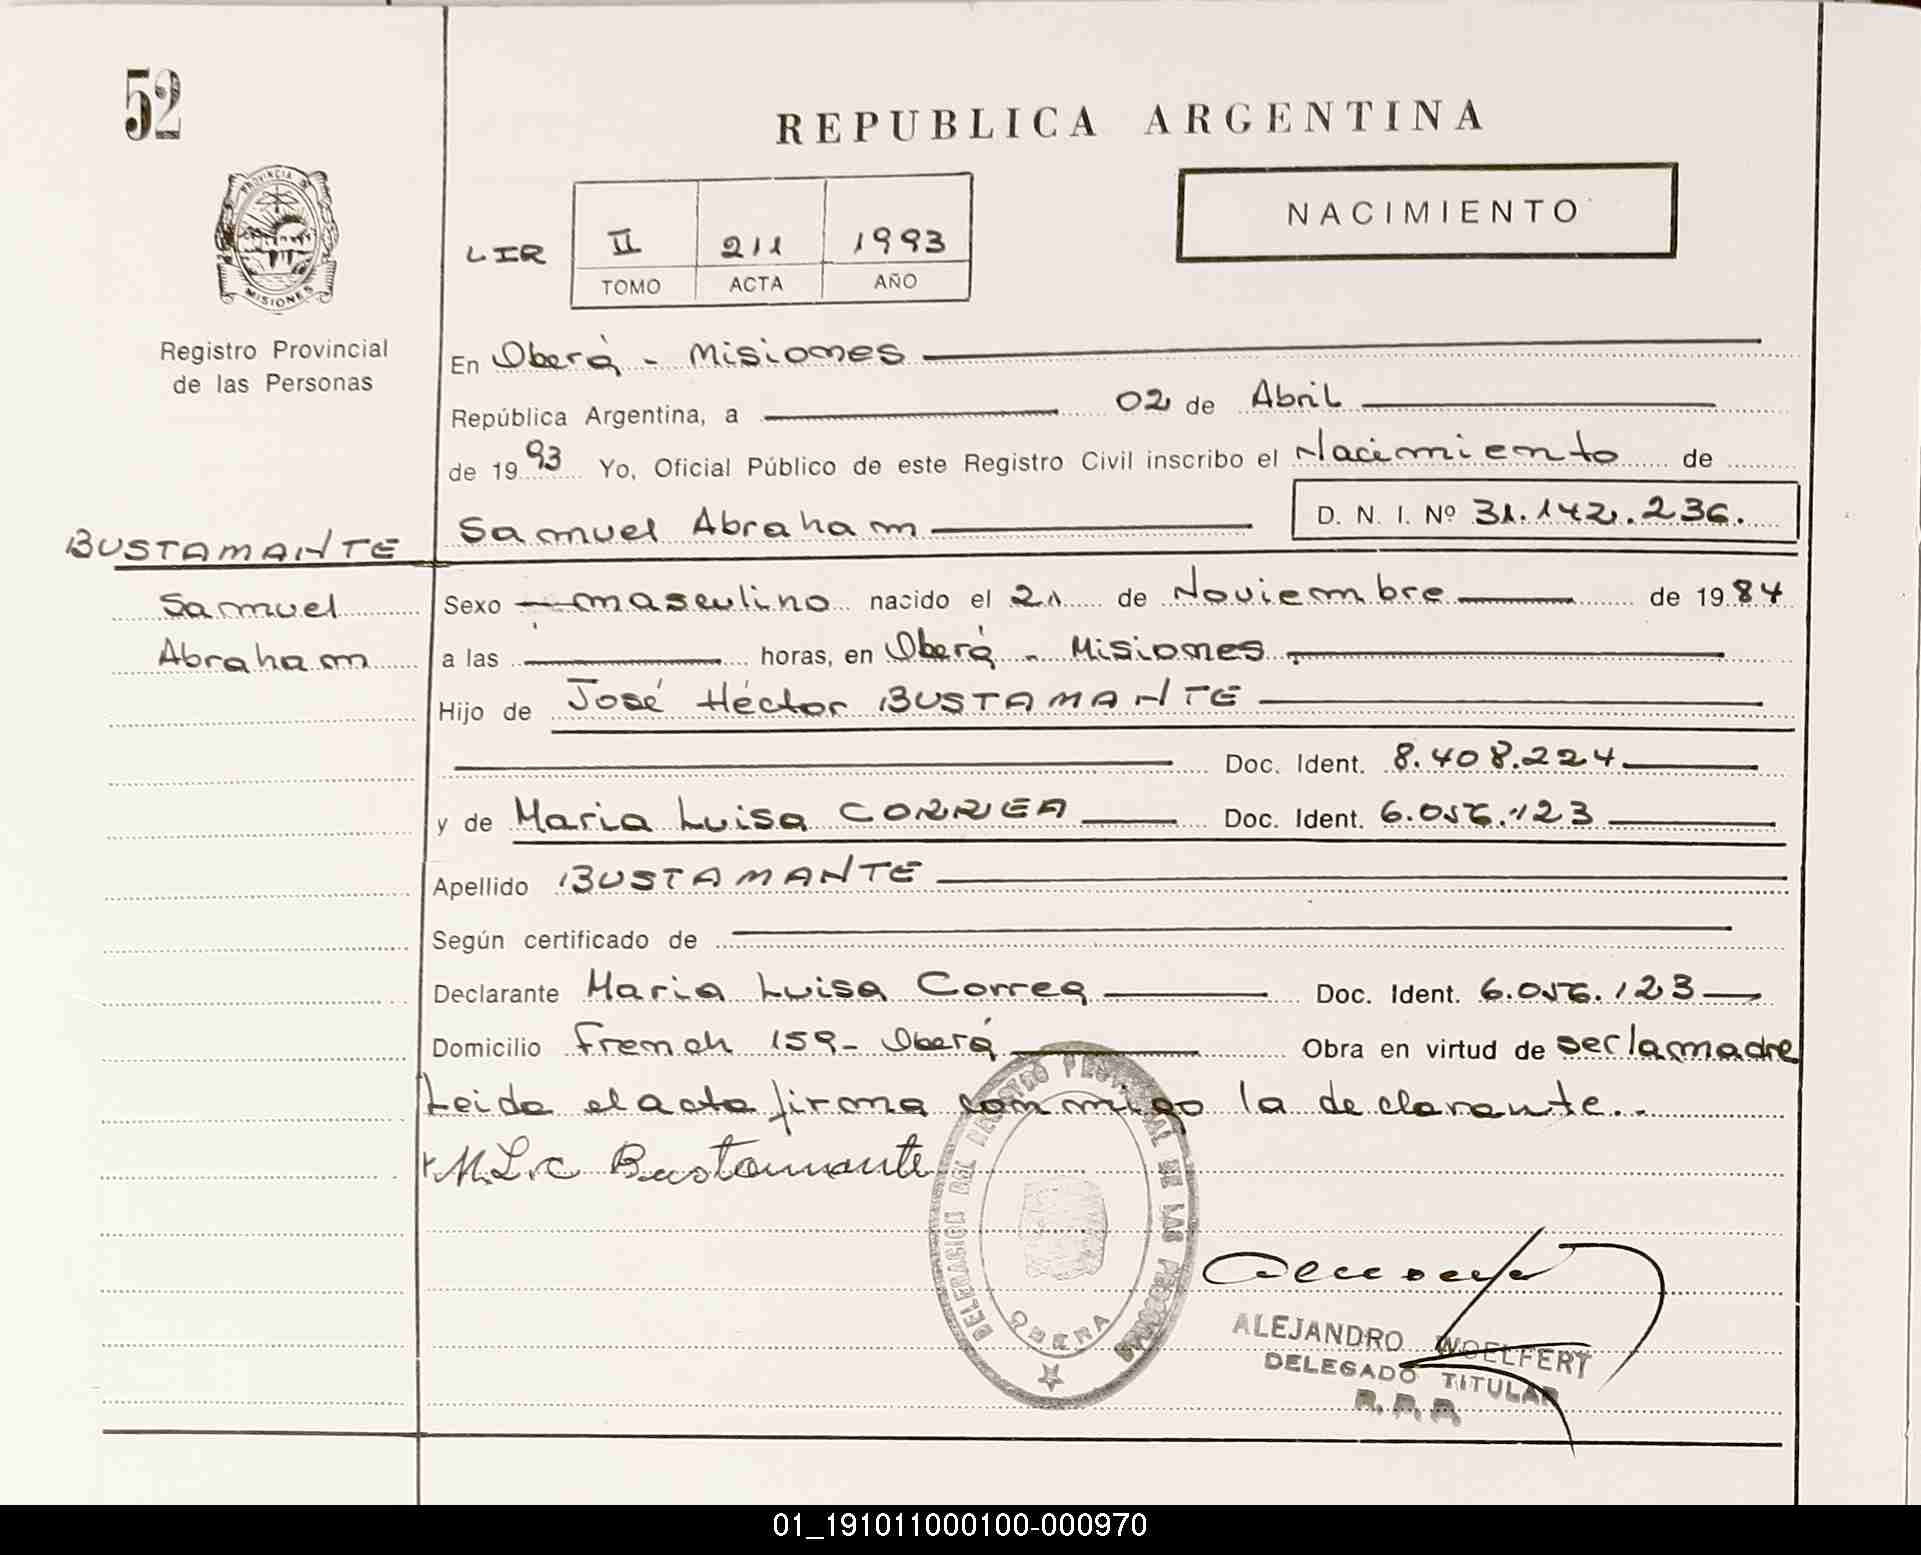 52
REPUBLICA ARGENTINA
PROVINCIA DE
MISIONES
NACIMIENTO
LIR II 211 1993
TOMO ACTA AÑO
Registro Provincial
de las Personas
En Oberá - Misiones
República Argentina, a 02 de Abril
de 1993 Yo, Oficial Público de este Registro Civil inscribo el Nacimiento de
Samuel Abraham D. N. I. Nº 31.142.236.
BUSTAMANTE
Samuel
Abraham
Sexo masculino nacido el 21 de Noviembre de 1984
a las horas, en Oberá - Misiones
Hijo de José Héctor BUSTAMANTE
Doc. Ident. 8.408.224
y de Maria Luisa CORREA Doc. Ident. 6.056.123
Apellido BUSTAMANTE
Según certificado de
Declarante Maria Luisa Correa Doc. Ident. 6.056.123
Domicilio French 159- Oberá Obra en virtud de ser la madre
Leida el acta firma conmigo la declarante..
M.L.C Bustamante
DELEGACION DEL REGISTRO PROVINCIAL DE LAS PERSONAS
OBERA
ALEJANDRO WOELFERT
DELEGADO TITULAR
R. P. P.
01_191011000100-000970